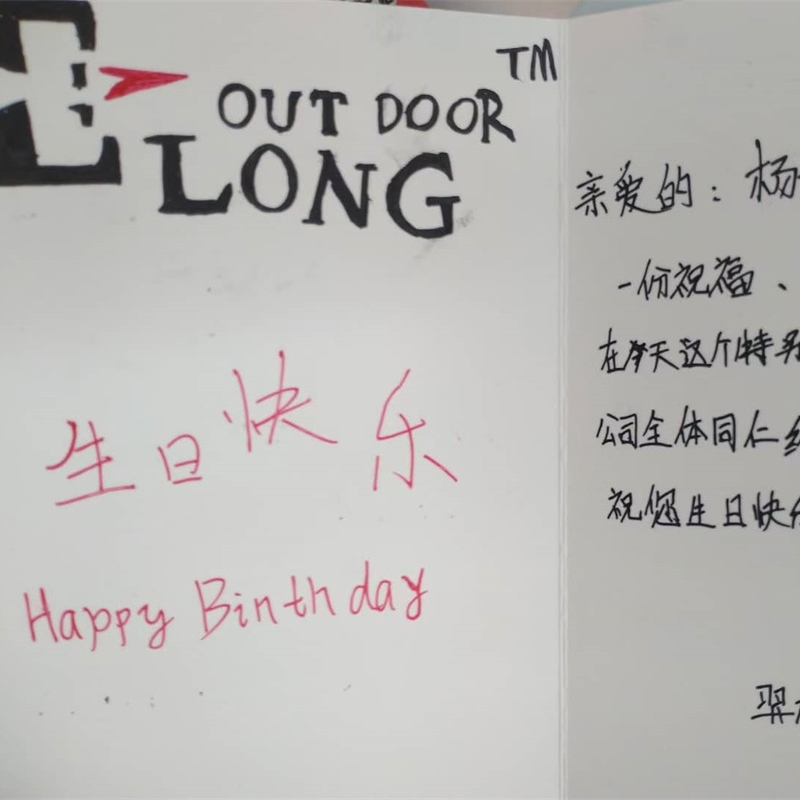 TM
OUT DOOR
LONG
生日快乐
Happy Binthday
亲爱的：杨
一份祝福、
在今天这个特别
公司全体同仁
祝您生日快乐
羿